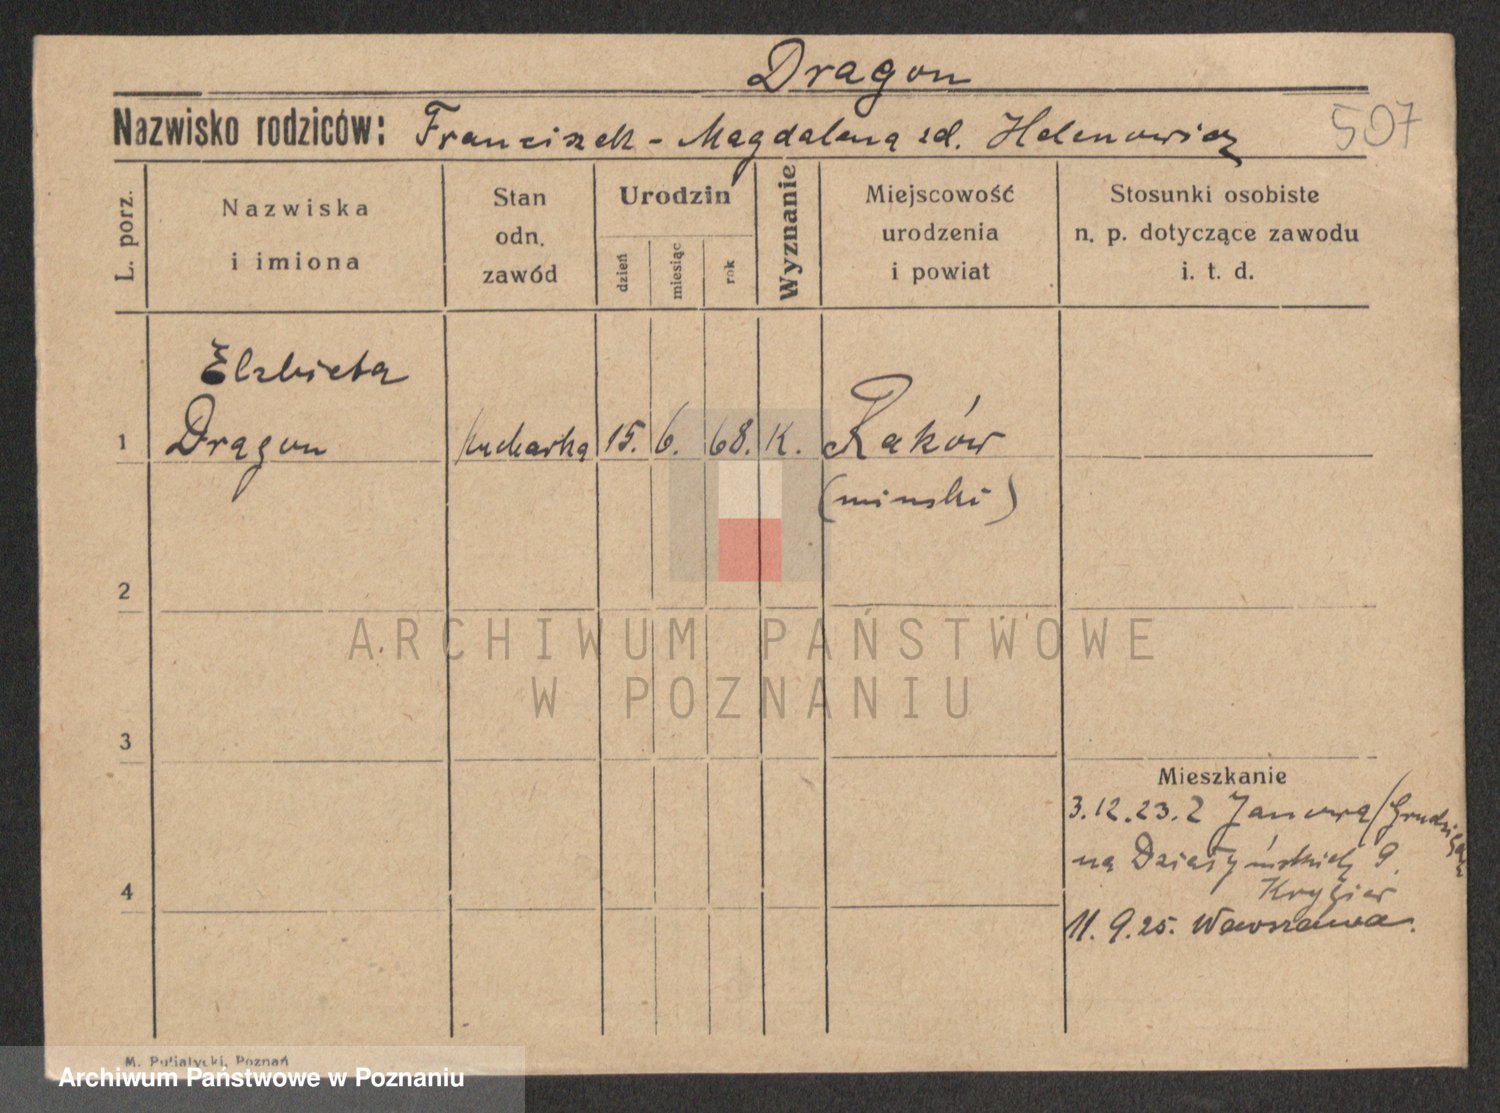 Dragon
Nazwisko rodziców: Franciszek - Magdalena zd. Helenowicz
507
L. porz.
Nazwiska
i imiona
Stan
odn.
zawód
Urodzin
dzień
miesiąc
rok
Wyznanie
Miejscowość
urodzenia
i powiat
Stosunki osobiste
n. p. dotyczące zawodu
i. t. d.
Elzbieta
1 Dragon kucharka 15. 6. 68. K. Raków
(minski)
2
ARCHIWUM PAŃSTWOWE
W POZNANIU
3
Mieszkanie
3.12.23. Z Janowa/Grudziądz
na Działyńskich 9
Kryzier
4
11. 9. 25. Warszawa.
M. Putiatycki, Poznań
Archiwum Państwowe w Poznaniu